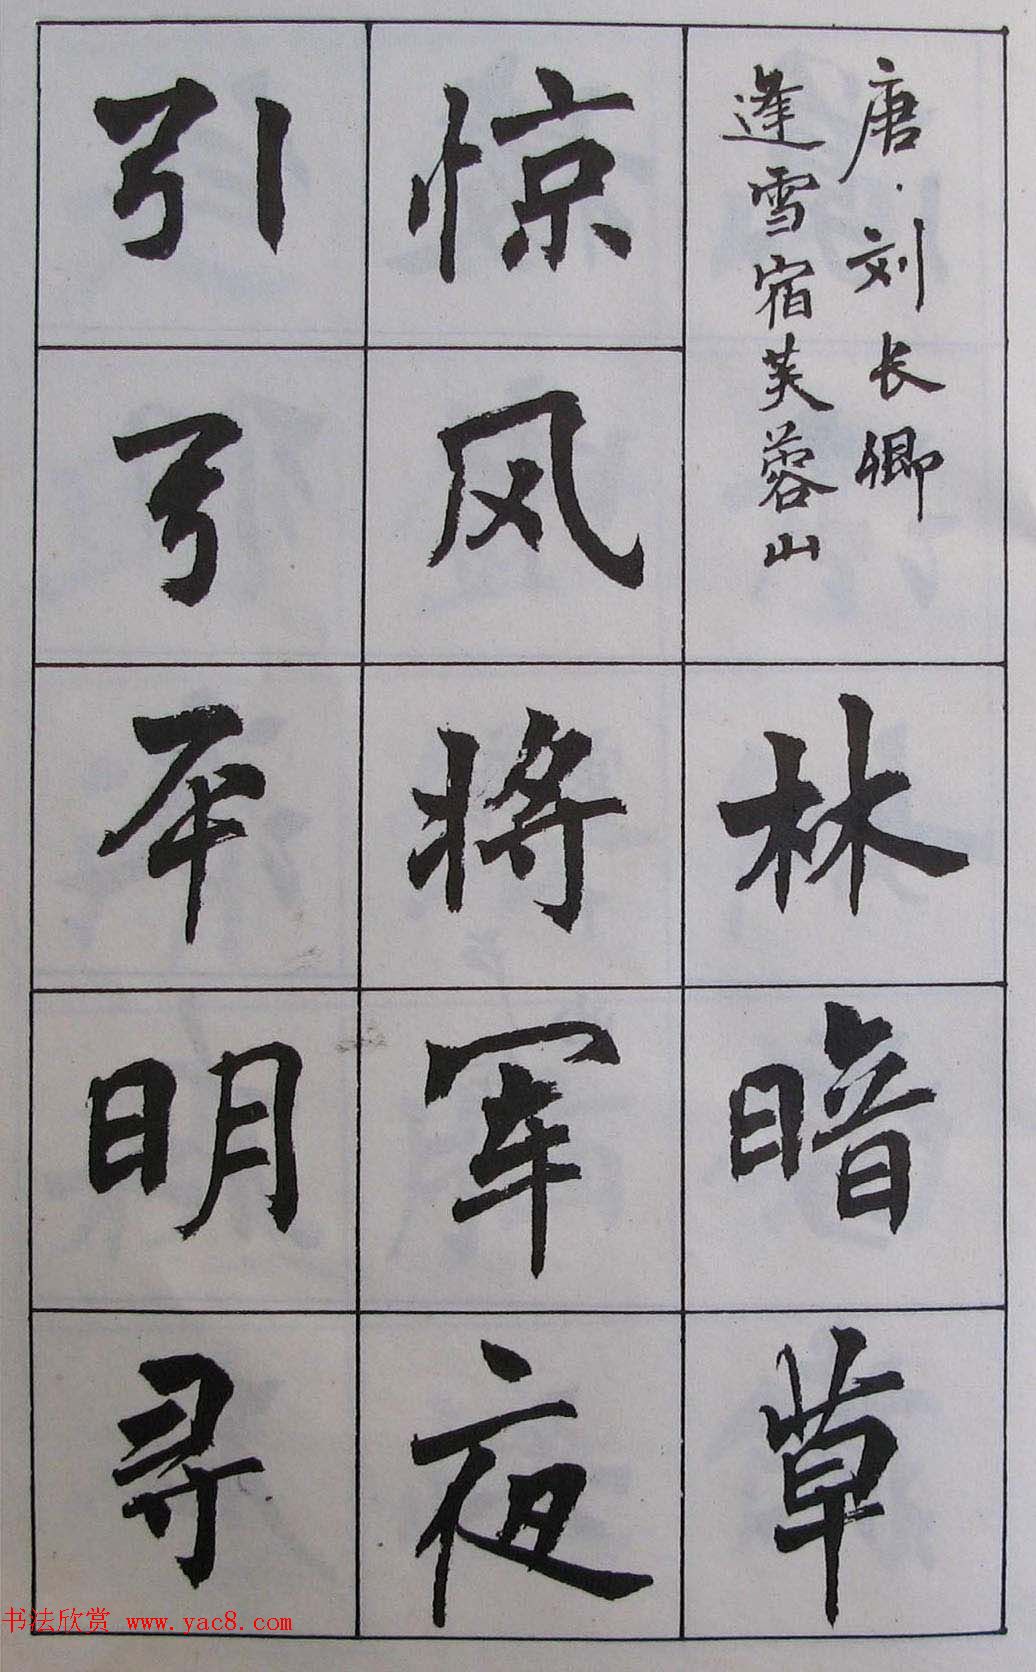 唐·刘长卿
逢雪宿芙蓉山
林暗草
惊风将军夜
引弓平明寻
书法欣赏 www.yac8.com